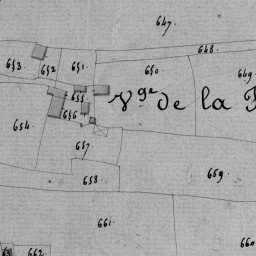 647.
648.
653
652
651.
650
649
655
Vge de la
654
656
657
658.
659.
661.
660
662.